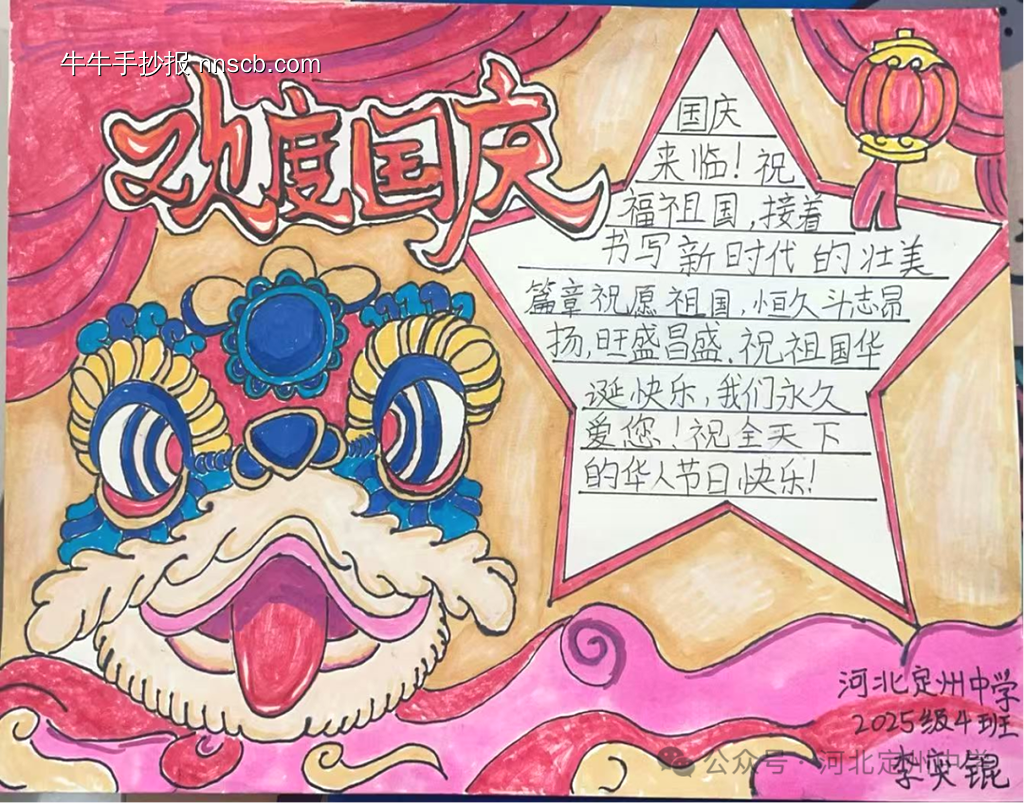 牛牛手抄报 nnscb.com
欢度国庆
国庆
来临!祝
福祖国,接着
书写新时代的壮美
篇章祝愿祖国,恒久斗志昂
扬,旺盛昌盛.祝祖国华
诞快乐,我们永久
爱您!祝全天下
的华人节日快乐!
河北定州中学
2025级4班
李英锟
公众号·河北定州中学